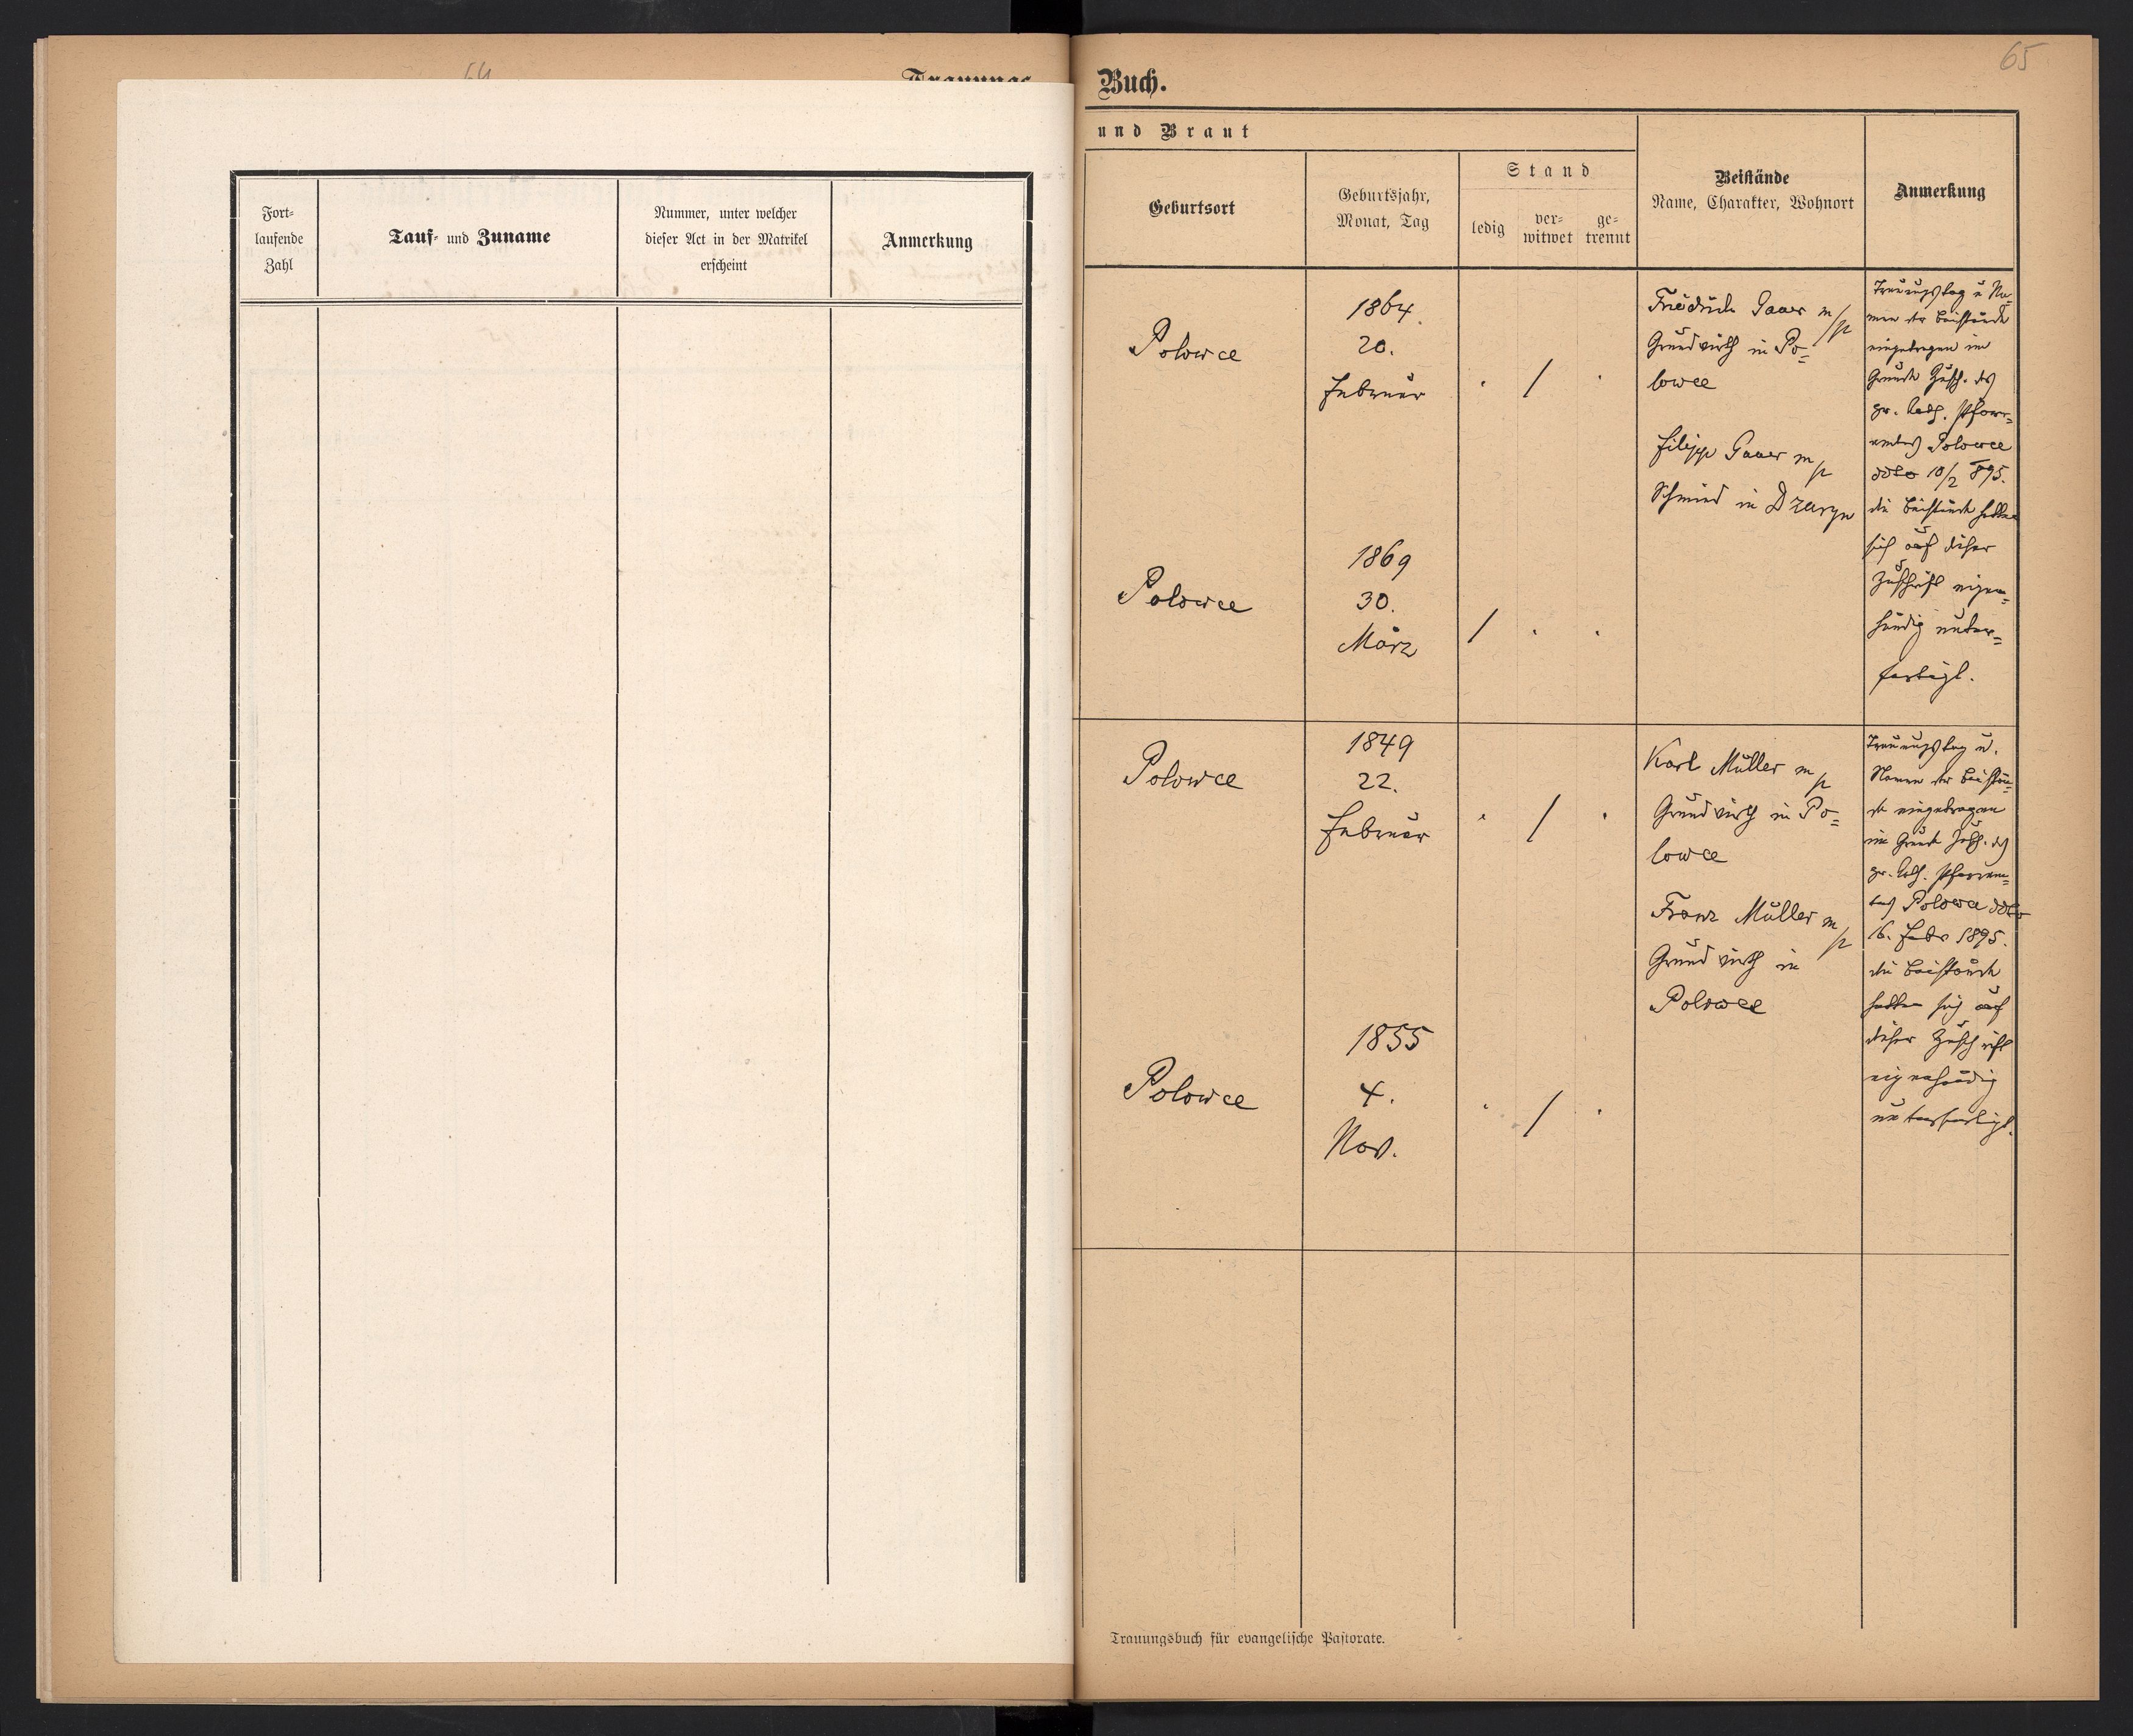 64
Fort-
laufende
Zahl
Tauf- und Zuname
Nummer, unter welcher
dieser Act in der Matrikel
erscheint
Anmerkung
65
Buch.
und Braut
Geburtsort
Geburtsjahr,
Monat, Tag
Stand
ledig
ver-
witwet
ge-
trennt
Beistände
Name, Charakter, Wohnort
Anmerkung
Polowce
1864.
20.
Februar
/
Friedrich Gauer m/p
Grundwirth in Po=
lowce
Filipp Gauer m/p
Schmied in Dzuryn
Trauungstag u Na=
men der Beistände
eingetragen im
Grunde Zusch. des
gr. kath. Pfarr=
amtes Polowce
ddto 10/2 895.
die Beistände hatten
sich auf dieser
Zuschrift eigen=
händig unter=
fertigt.
Polowce
1869
30.
März
/
Polowce
1849
22.
Februar
/
Karl Müller m/p
Grundwirth in Po=
lowce
Franz Müller m/p
Grundwirth in
Polowce
Trauungstag u.
Namen der Beistän=
de eingetragen
im Grunde Zusch. des
gr. kath. Pfarram=
tes Polowce ddto
16. Febr 1895.
die Beistände
hatten sich auf
dieser Zuschrift
eigenhändig
unterfertigt.
Polowce
1855
4.
Nov.
/
Trauungsbuch für evangelische Pastorate.